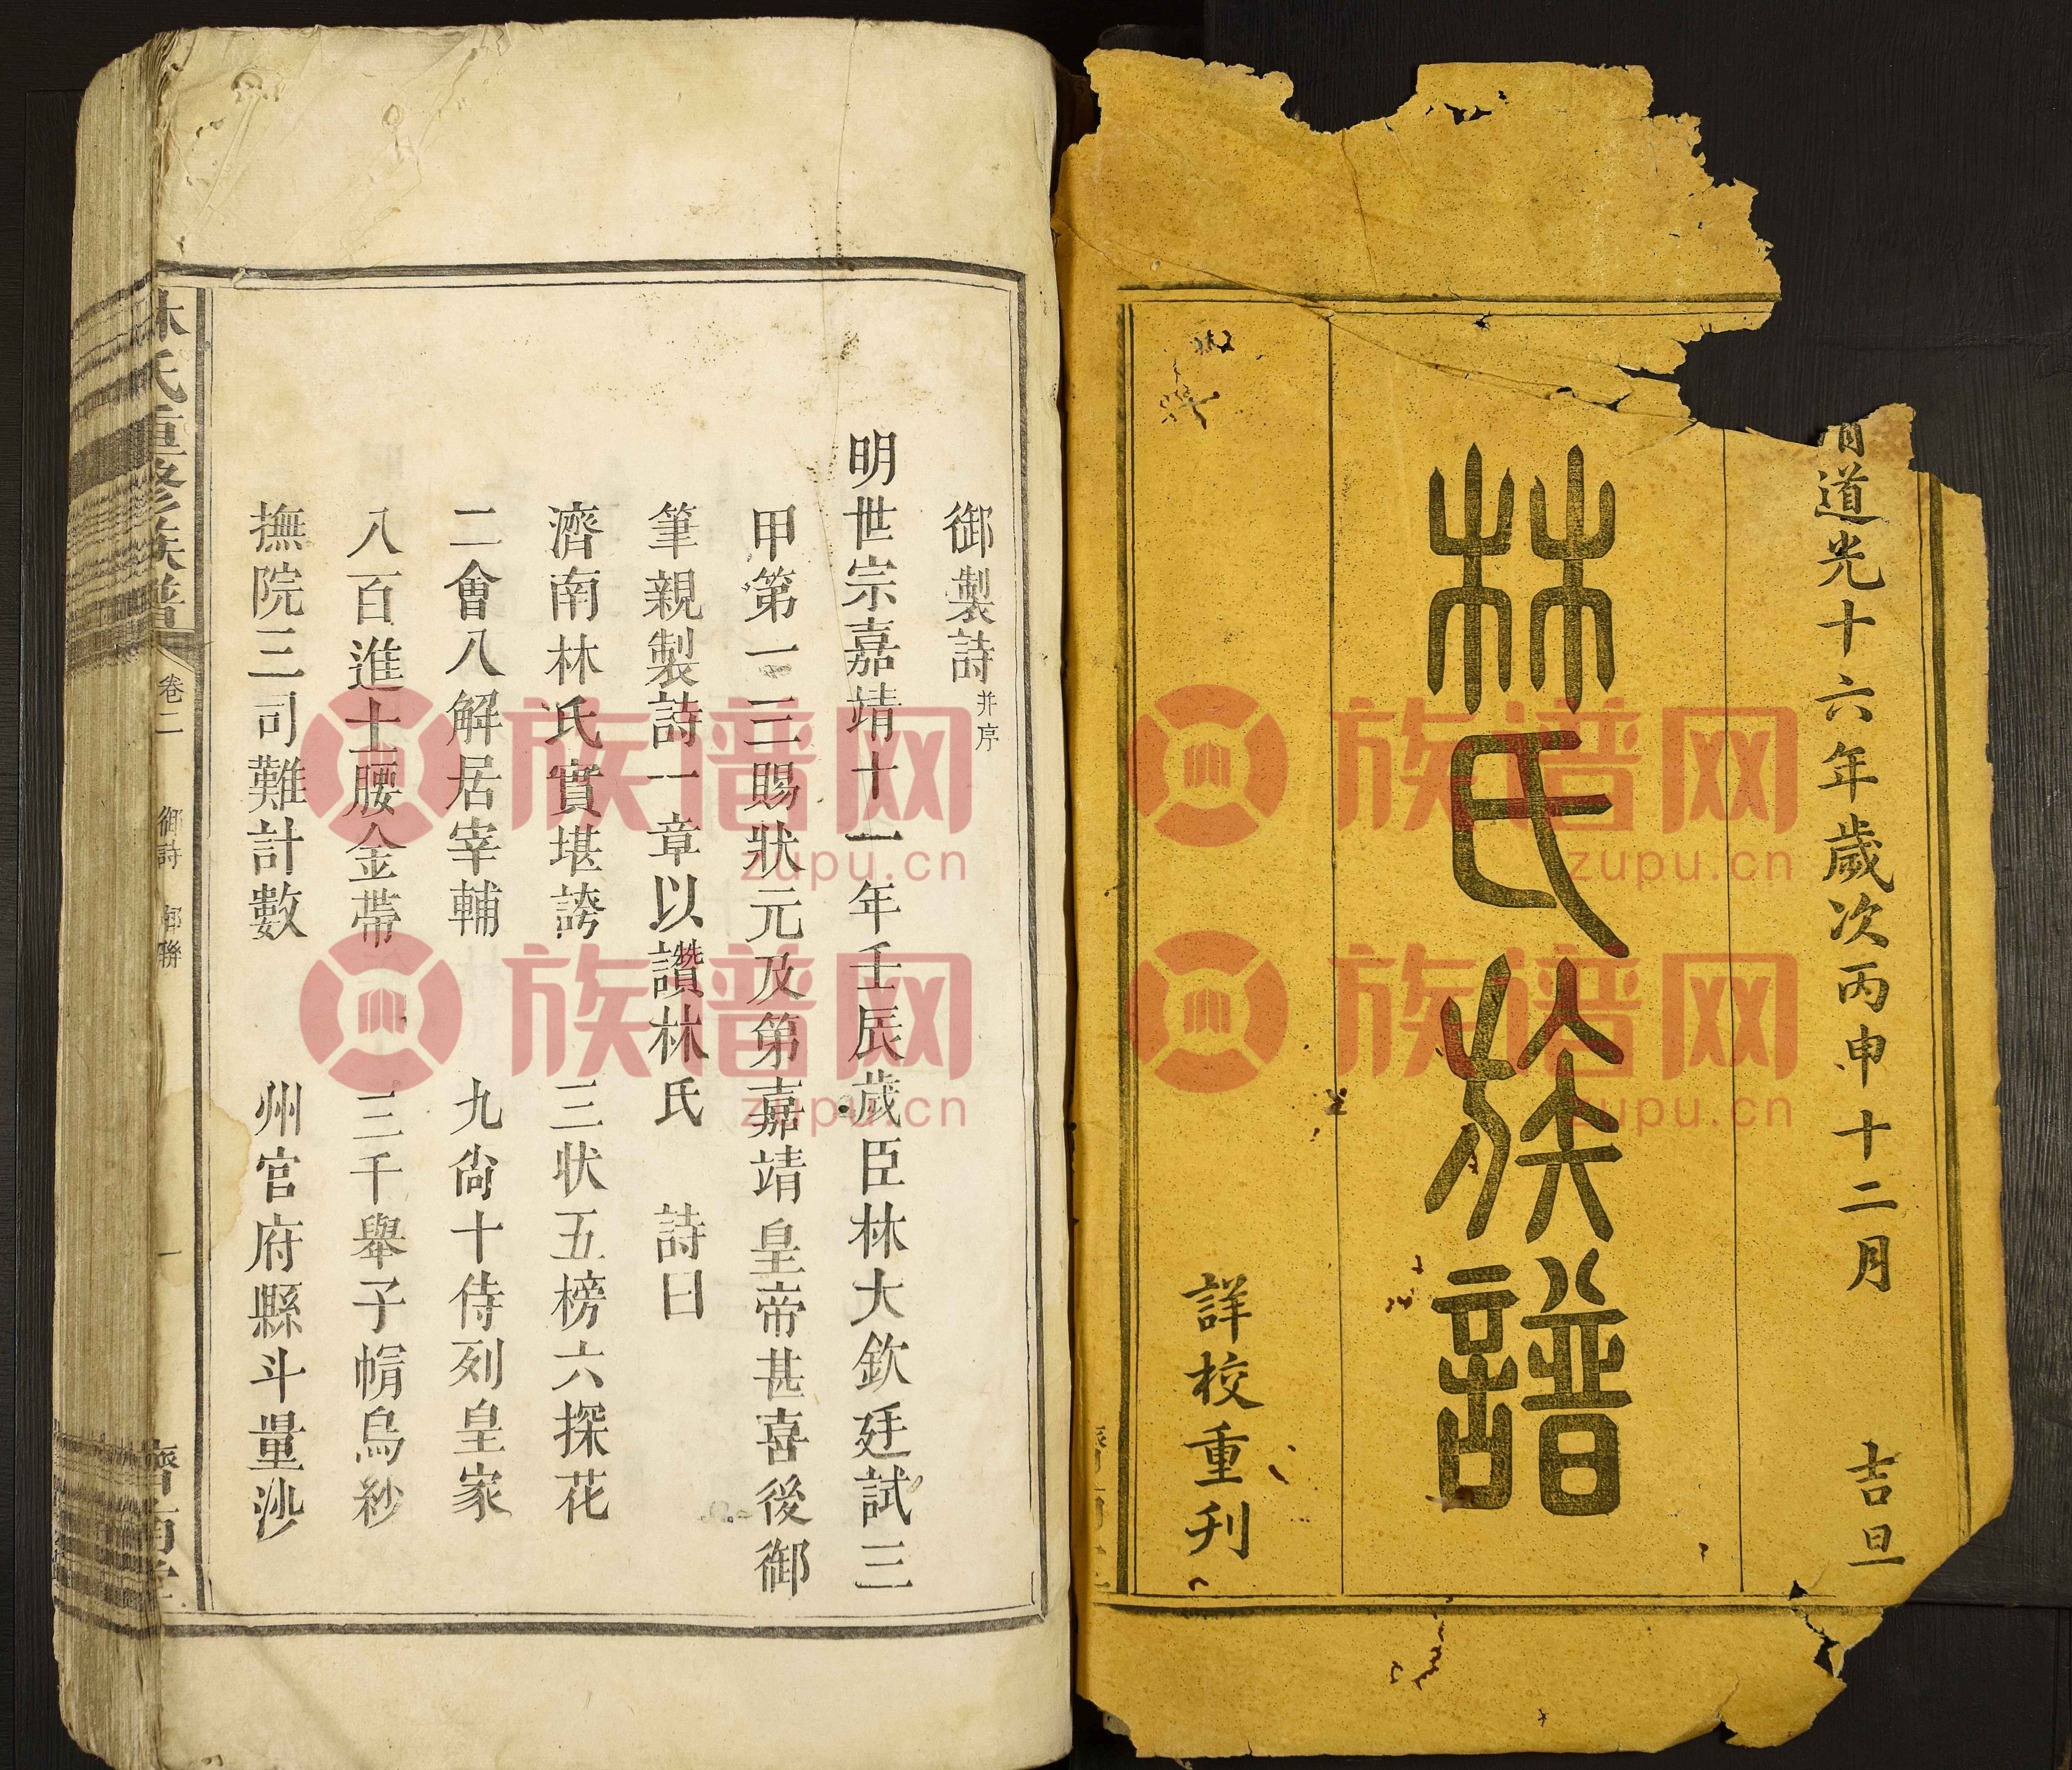 清道光十六年歲次丙申十二月 吉旦
林氏族譜
詳校重刋
御製詩 并序
明世宗嘉靖十一年壬辰歲臣林大欽廷試三
甲第一三賜狀元及第嘉靖皇帝甚喜後御
筆親製詩一章以讚林氏 詩曰
濟南林氏實堪誇 三状五榜六探花
二會八解居宰輔 九尙十侍列皇家
八百進士腰金帶 三千舉子帽烏紗
撫院三司難計數 州官府縣斗量沙
林氏重修族譜 卷二 御詩 御聯 一 濟南堂
族谱网
zupu.cn
族谱网
zupu.cn
族谱网
zupu.cn
族谱网
zupu.cn